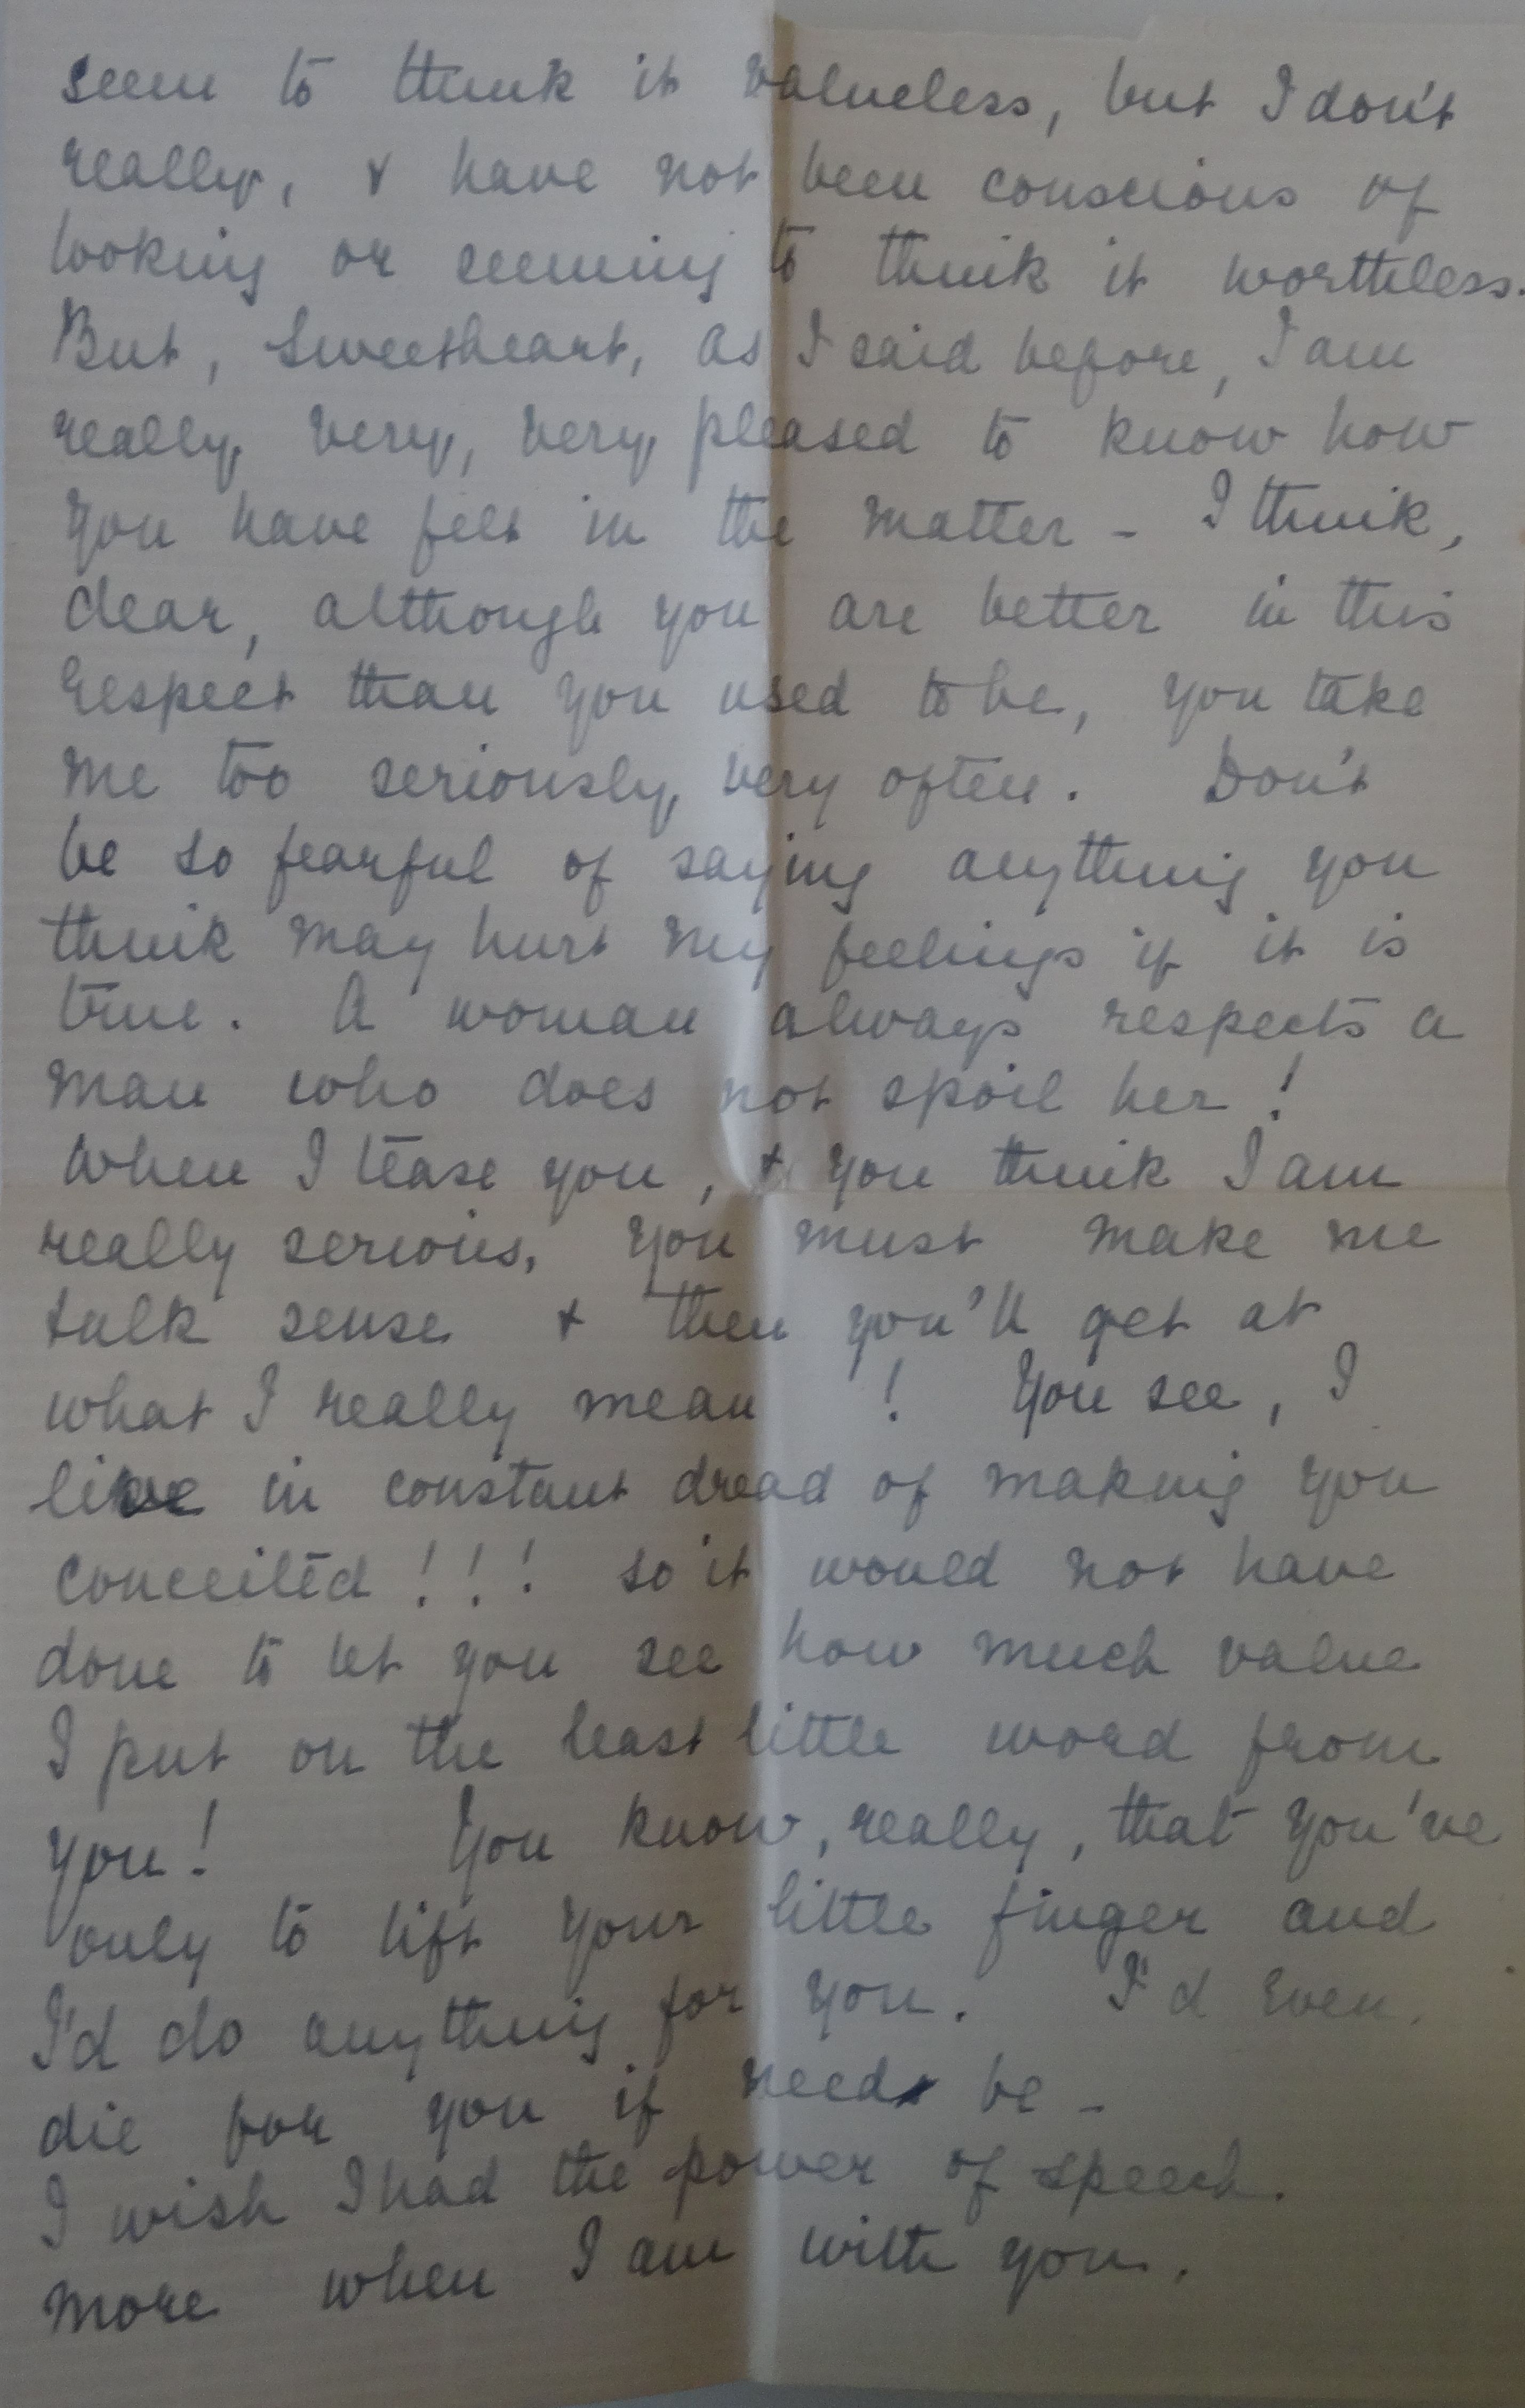 seem to think it valueless, but I don't
really, & have not been conscious of
looking or seeming to think it worthless.
But, Sweetheart, as I said before, I am
really, very, very pleased to know how
you have felt in the matter - I think,
dear, although you are better in this
respect than you used to be, you take
me too seriously, very often. Don't
be so fearful of saying anything you
think may hurt my feelings if it is
true. A woman always respects a
man who does not spoil her!
When I tease you, & you think I am
really serious, you must make me
talk sense & then you'll get at
what I really mean! You see, I
live in constant dread of making you
conceited!!! so it would not have
done to let you see how much value
I put on the least little word from
you! You know, really, that you've
only to lift your little finger and
I'd do anything for you. I'd even
die for you if need be -
I wish I had the power of speech
more when I am with you.